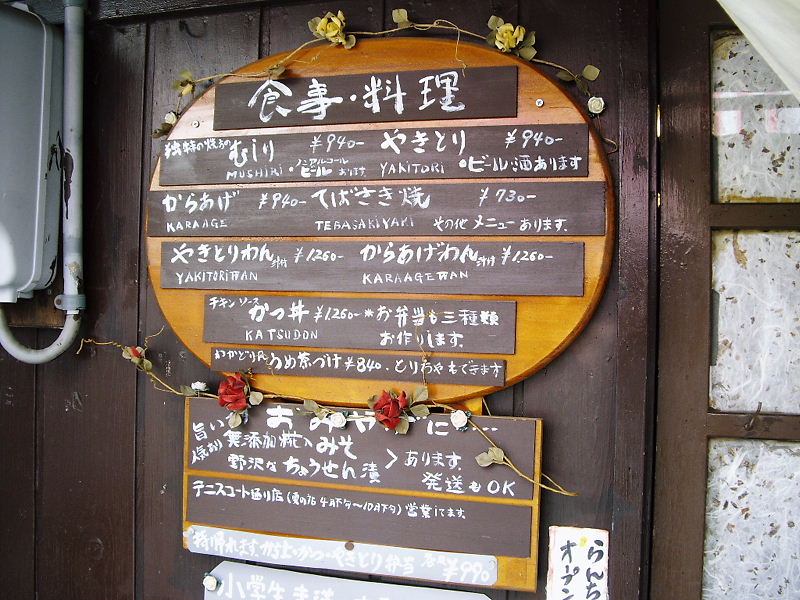 食事・料理
独特の焼方の むしり ¥940- やきとり ¥940-
MUSHIRI ・ノンアルコールビールあります YAKITORI ・ビール・酒あります
からあげ ¥940- てばさき焼 ¥730-
KARAAGE TEBASAKIYAKI その他 メニューあります.
やきとりわん 汁付 ¥1,260- からあげわん 汁付 ¥1,260-
YAKITORIWAN KARAAGEWAN
チキン ソース かつ丼 ¥1,260- *お弁当も三種類
KATSUDON お作りします.
わかどりの うめ茶づけ ¥840. とりわさもできます
おみやげに・・・
旨い 無添加糀入みそ
人気あり 野沢なちょうせん漬 > あります. 発送もOK
テニスコート通り店(夏の店 4月下旬〜10月下旬)営業してます
持帰れます.から上・かつ・やきとり弁当 各¥990
小学生
らんち
オープン